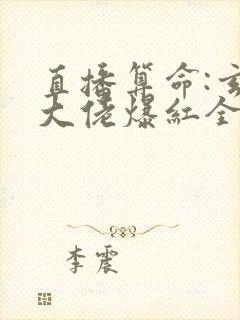 直播算命:玄
大佬爆红全
李震